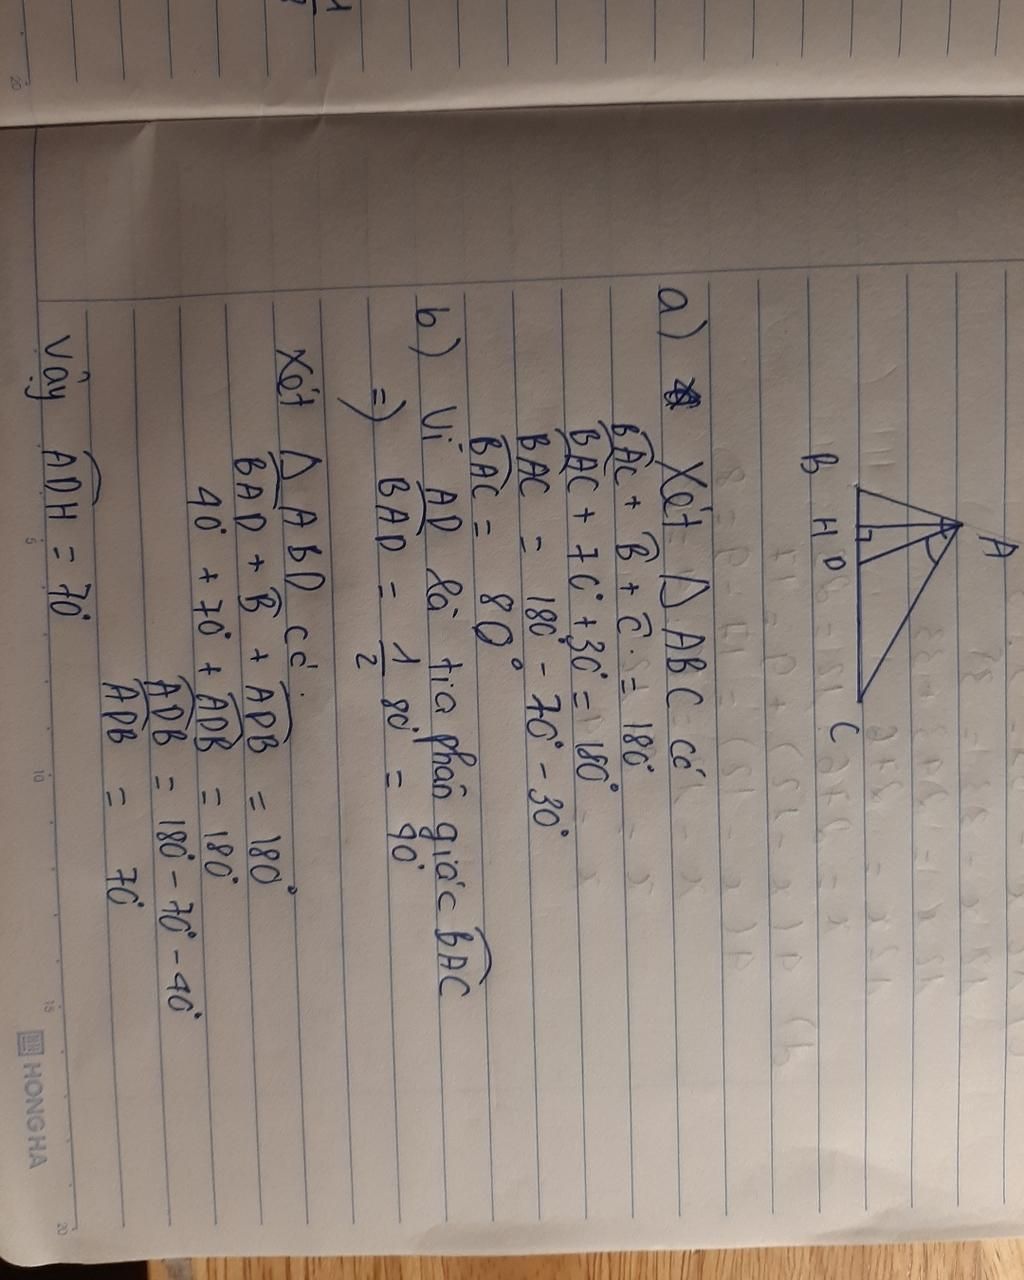 A
B H D C
a) Xét Δ ABC có
BAC + B + C = 180°
BAC + 70° + 30° = 180°
BAC = 180° - 70° - 30°
BAC = 80°
b) Vì AD là tia phân giác BAC
=) BAD = 1/2 80° = 40°
Xét Δ ABD có.
BAD + B + ADB = 180°
40° + 70° + ADB = 180°
ADB = 180° - 70° - 40°
ADB = 70°
Vậy ADH = 70°
HONG HA
5 10 15 20
20